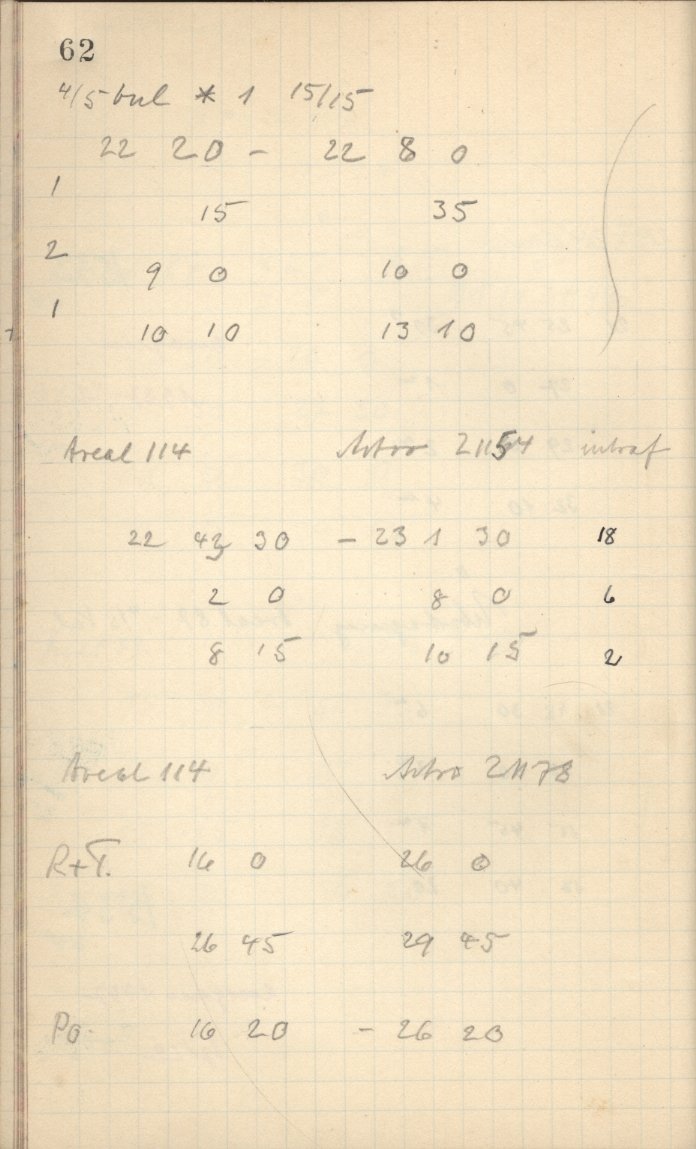 62
4/5 bul * 1 15/15
22 20 - 22 8 0
1
15 35
2
9 0 10 0
1
10 10 13 10
Areal 114 Astro 21154 intraf
22 42 30 - 23 1 30 18
2 0 8 0 6
8 15 10 15 2
Areal 114 Astro 21178
R+T. 16 0 26 0
26 45 29 45
Po. 16 20 - 26 20